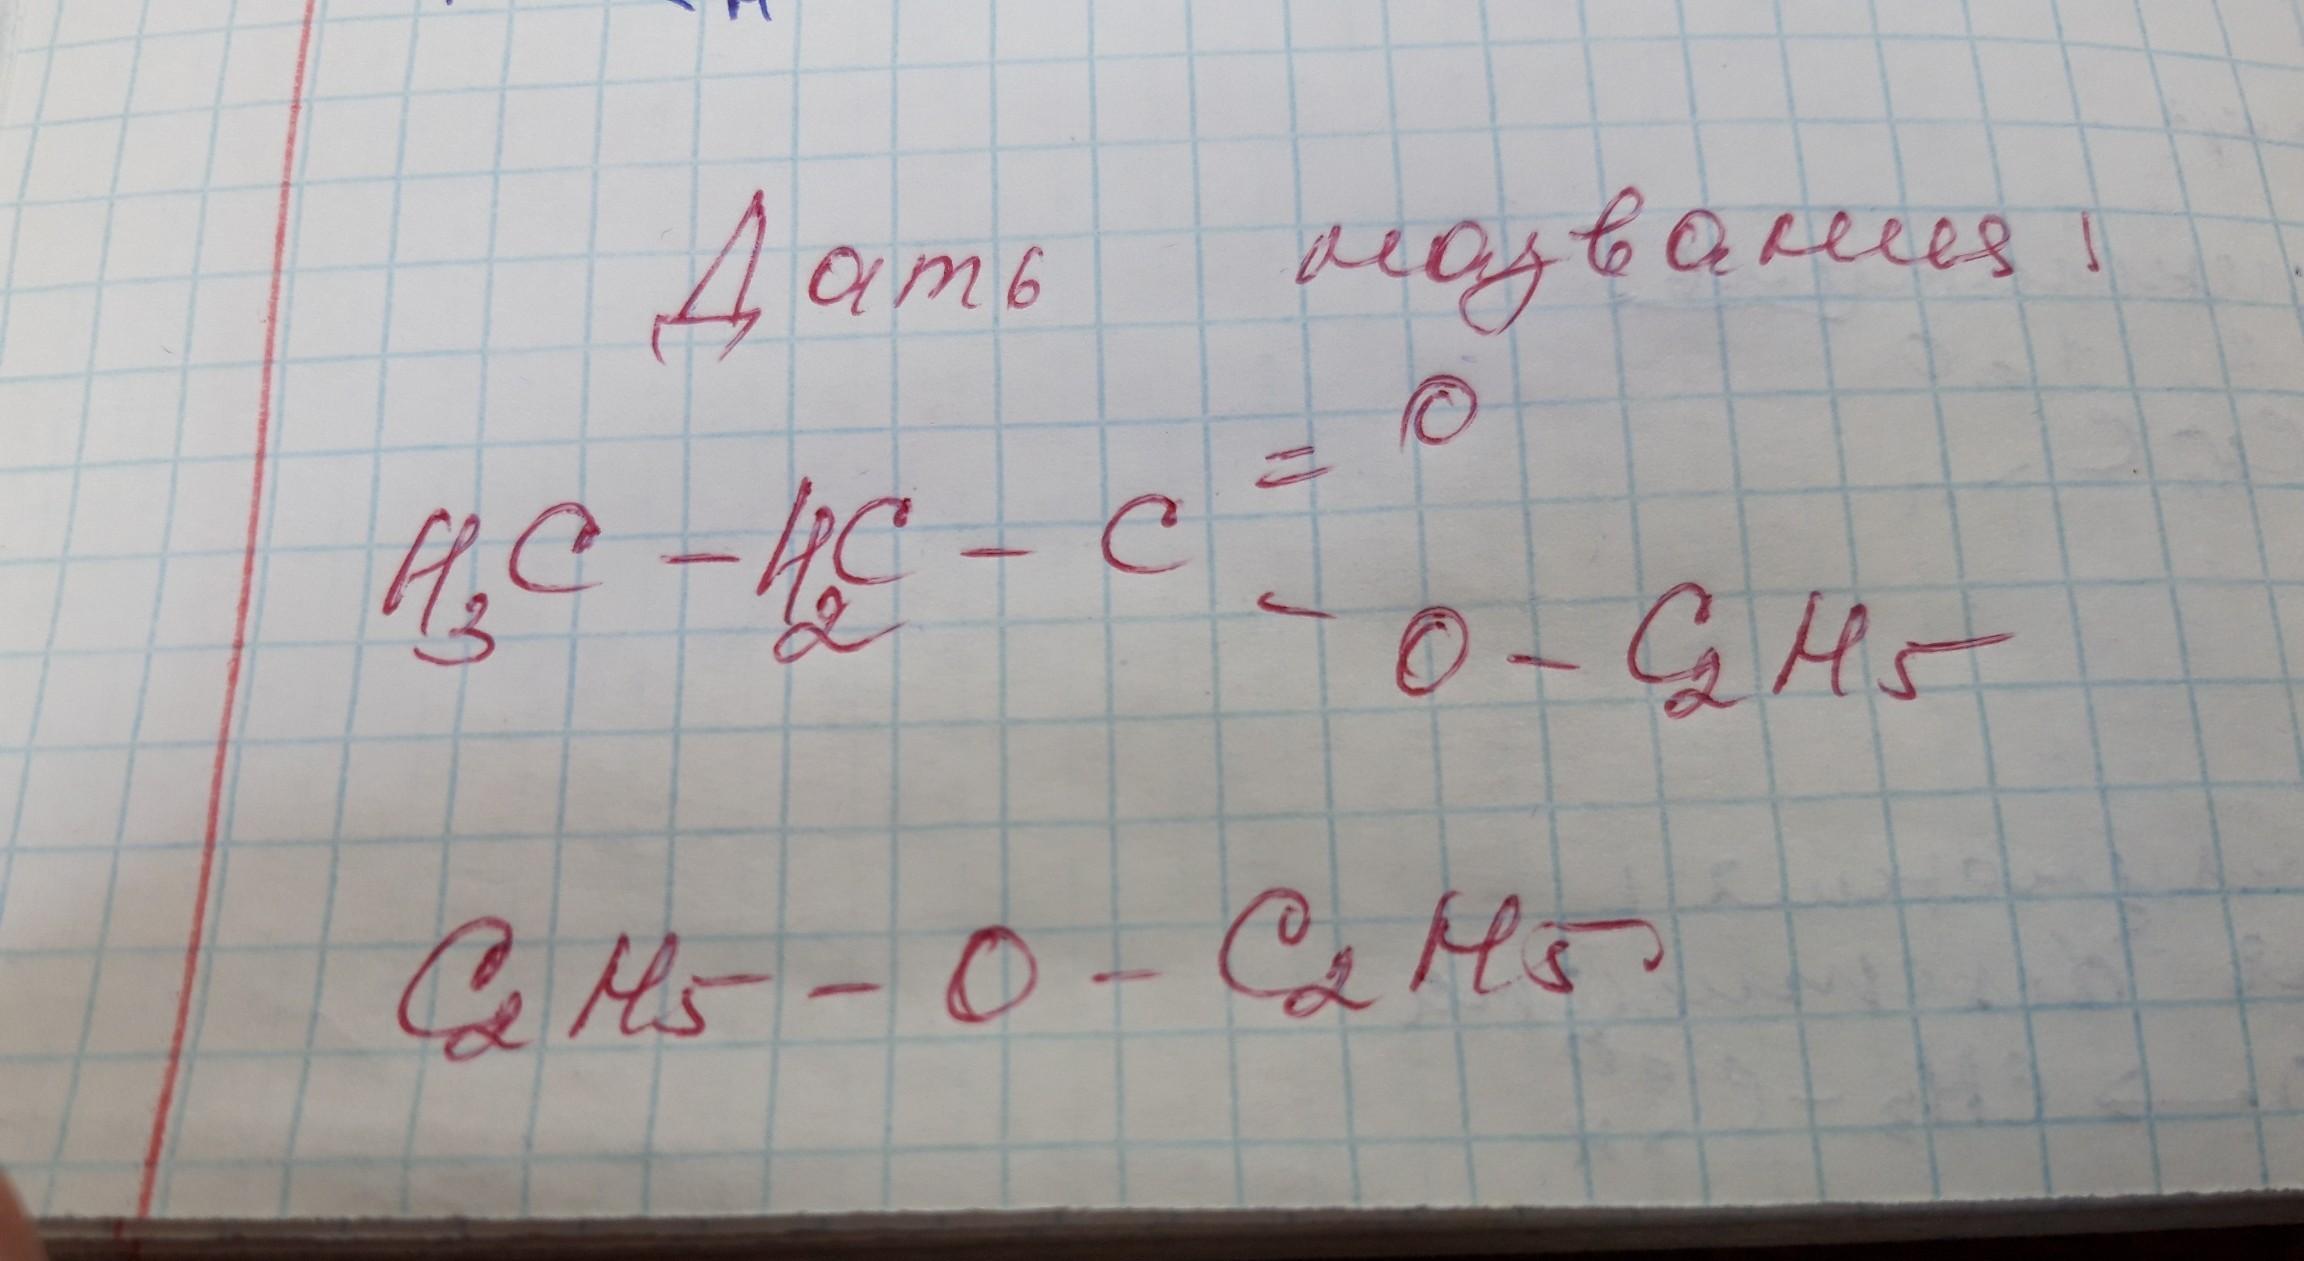 Дать названия:
= O
H₃C - H₂C - C
- O - C₂H₅
C₂H₅ - O - C₂H₅